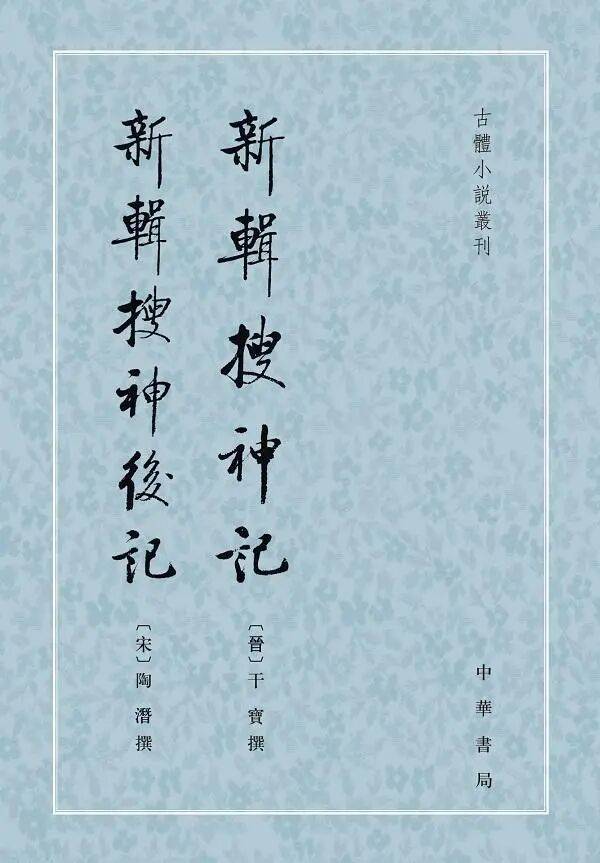 古體小説叢刊
中華書局
新輯搜神記
〔晉〕干寶撰
新輯搜神後記
〔宋〕陶潛撰